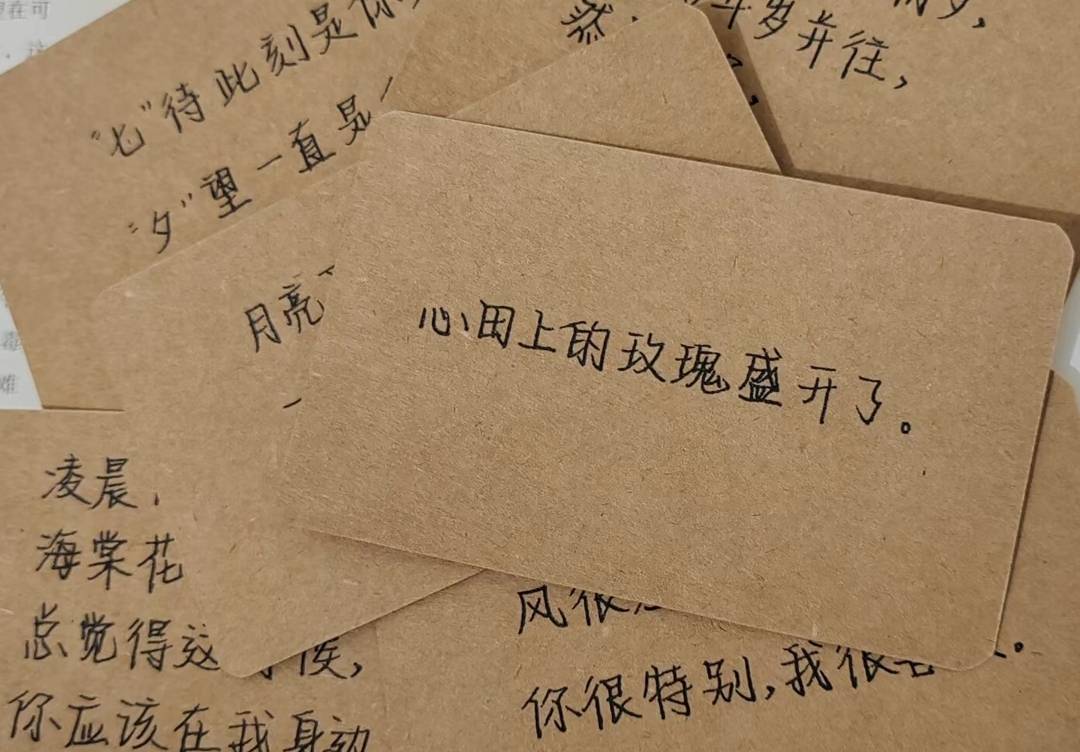 "七"待此刻是你
"夕"望一直是
然，
岁并往，
月亮
一
心田上的玫瑰盛开了。
凌晨，
海棠花
总觉得这 候，
你应该在我身边
风很
你很特别，我很